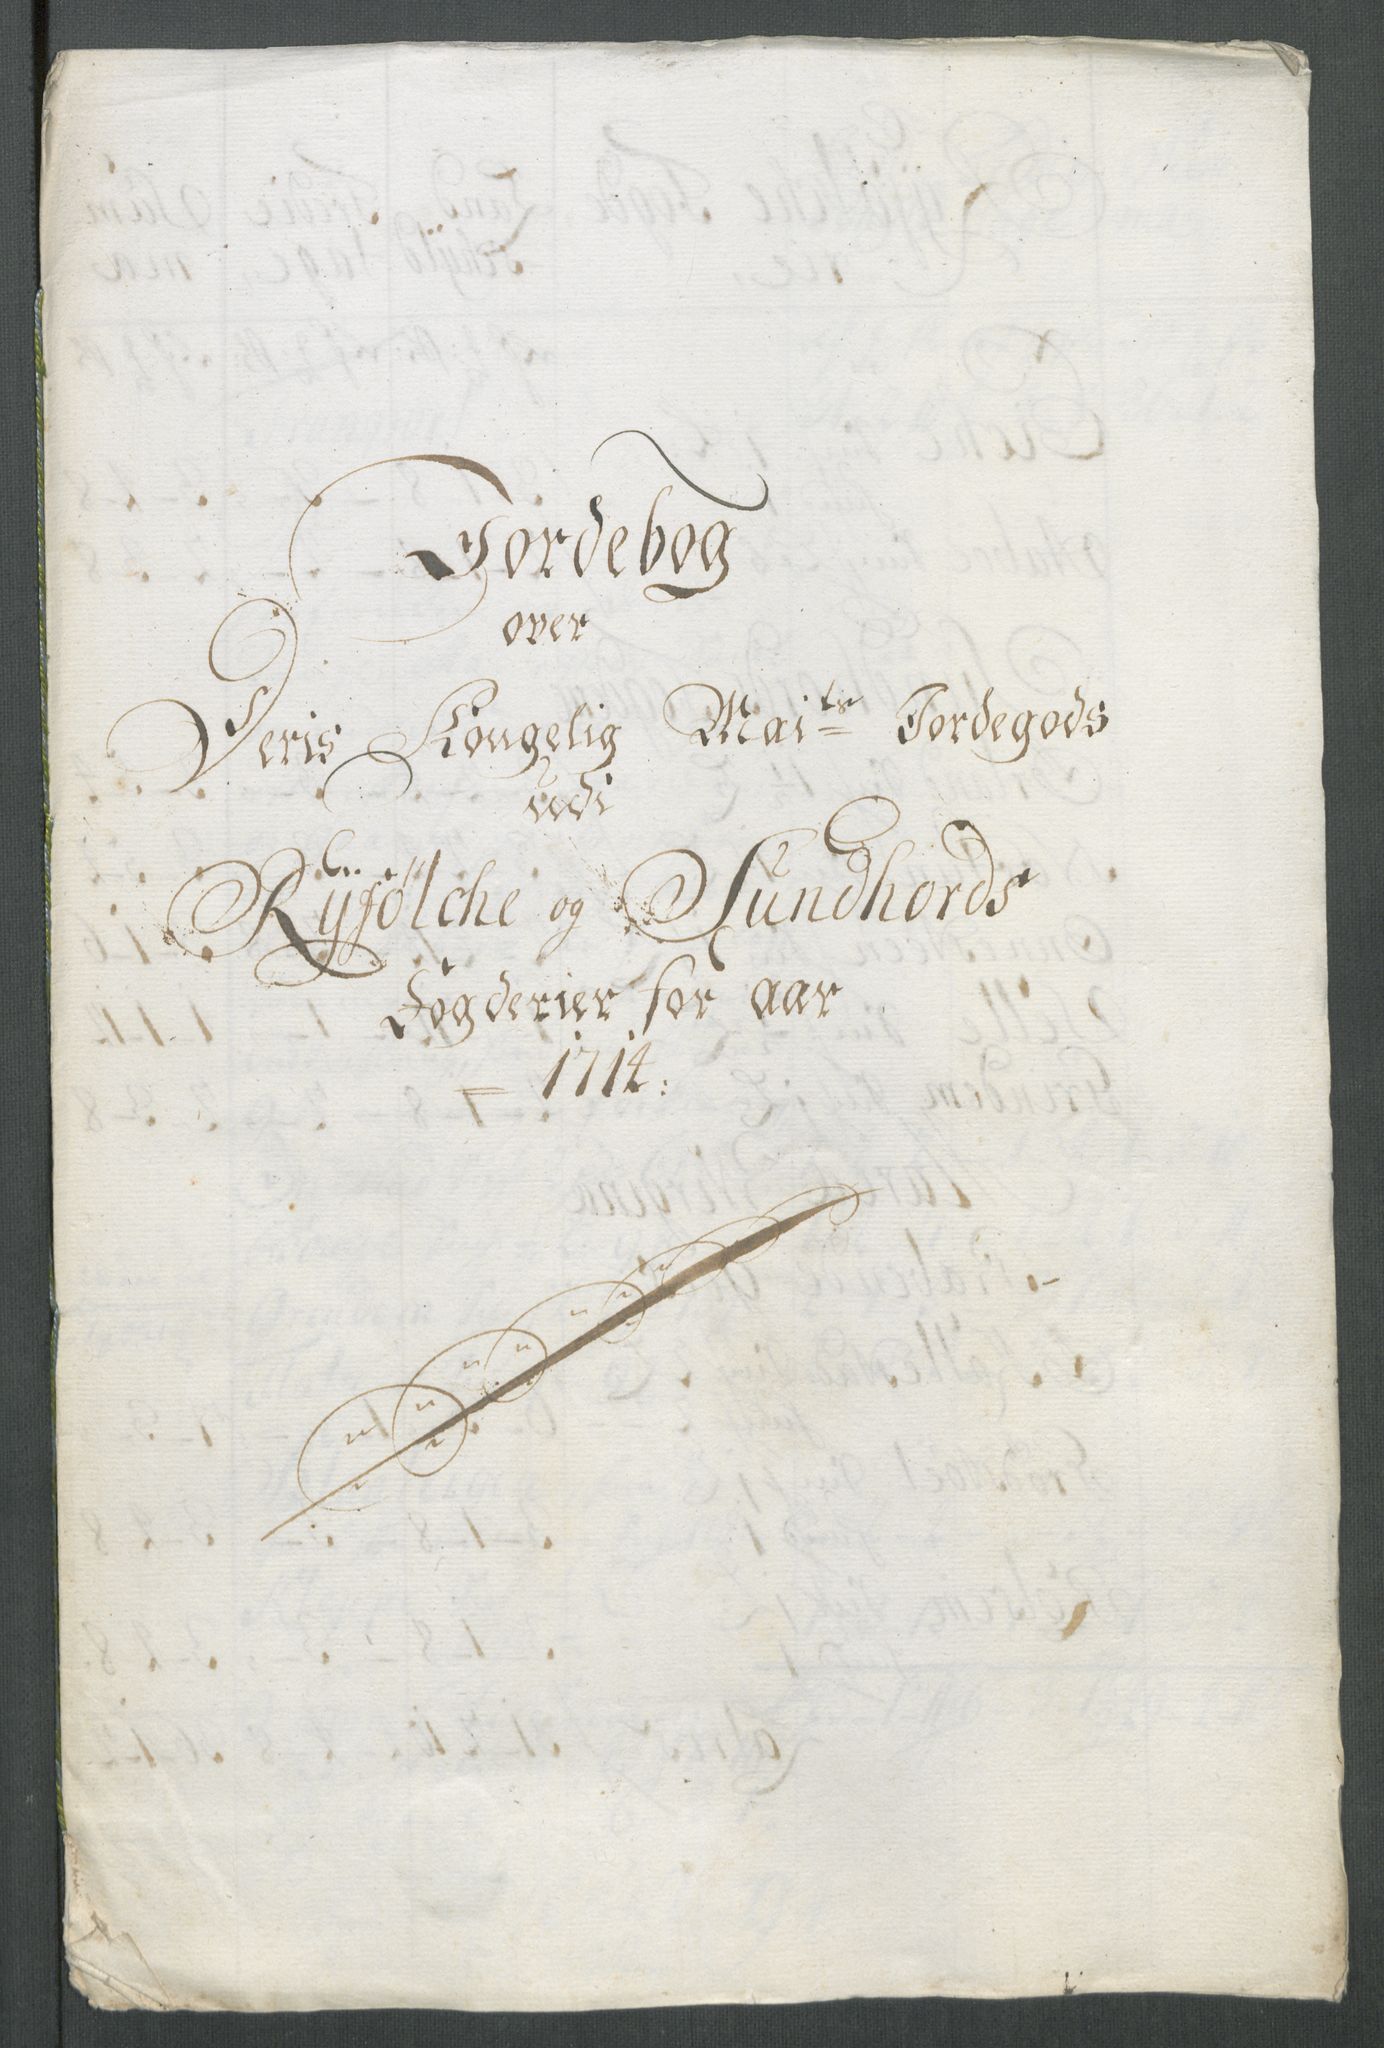 Jordebog
over
Deris Kongelig Mai^ts Jordegods
udi
Rÿfölche og Sundhords
Fogderier for aar
1714: